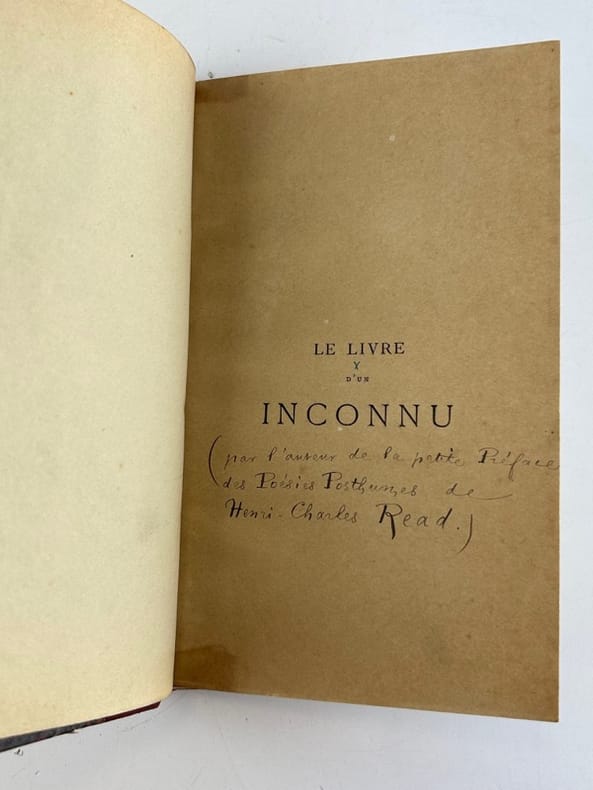 LE LIVRE
D'UN
INCONNU
(par l'auteur de la petite Préface
des Poésies Posthumes de
Henri-Charles Read.)